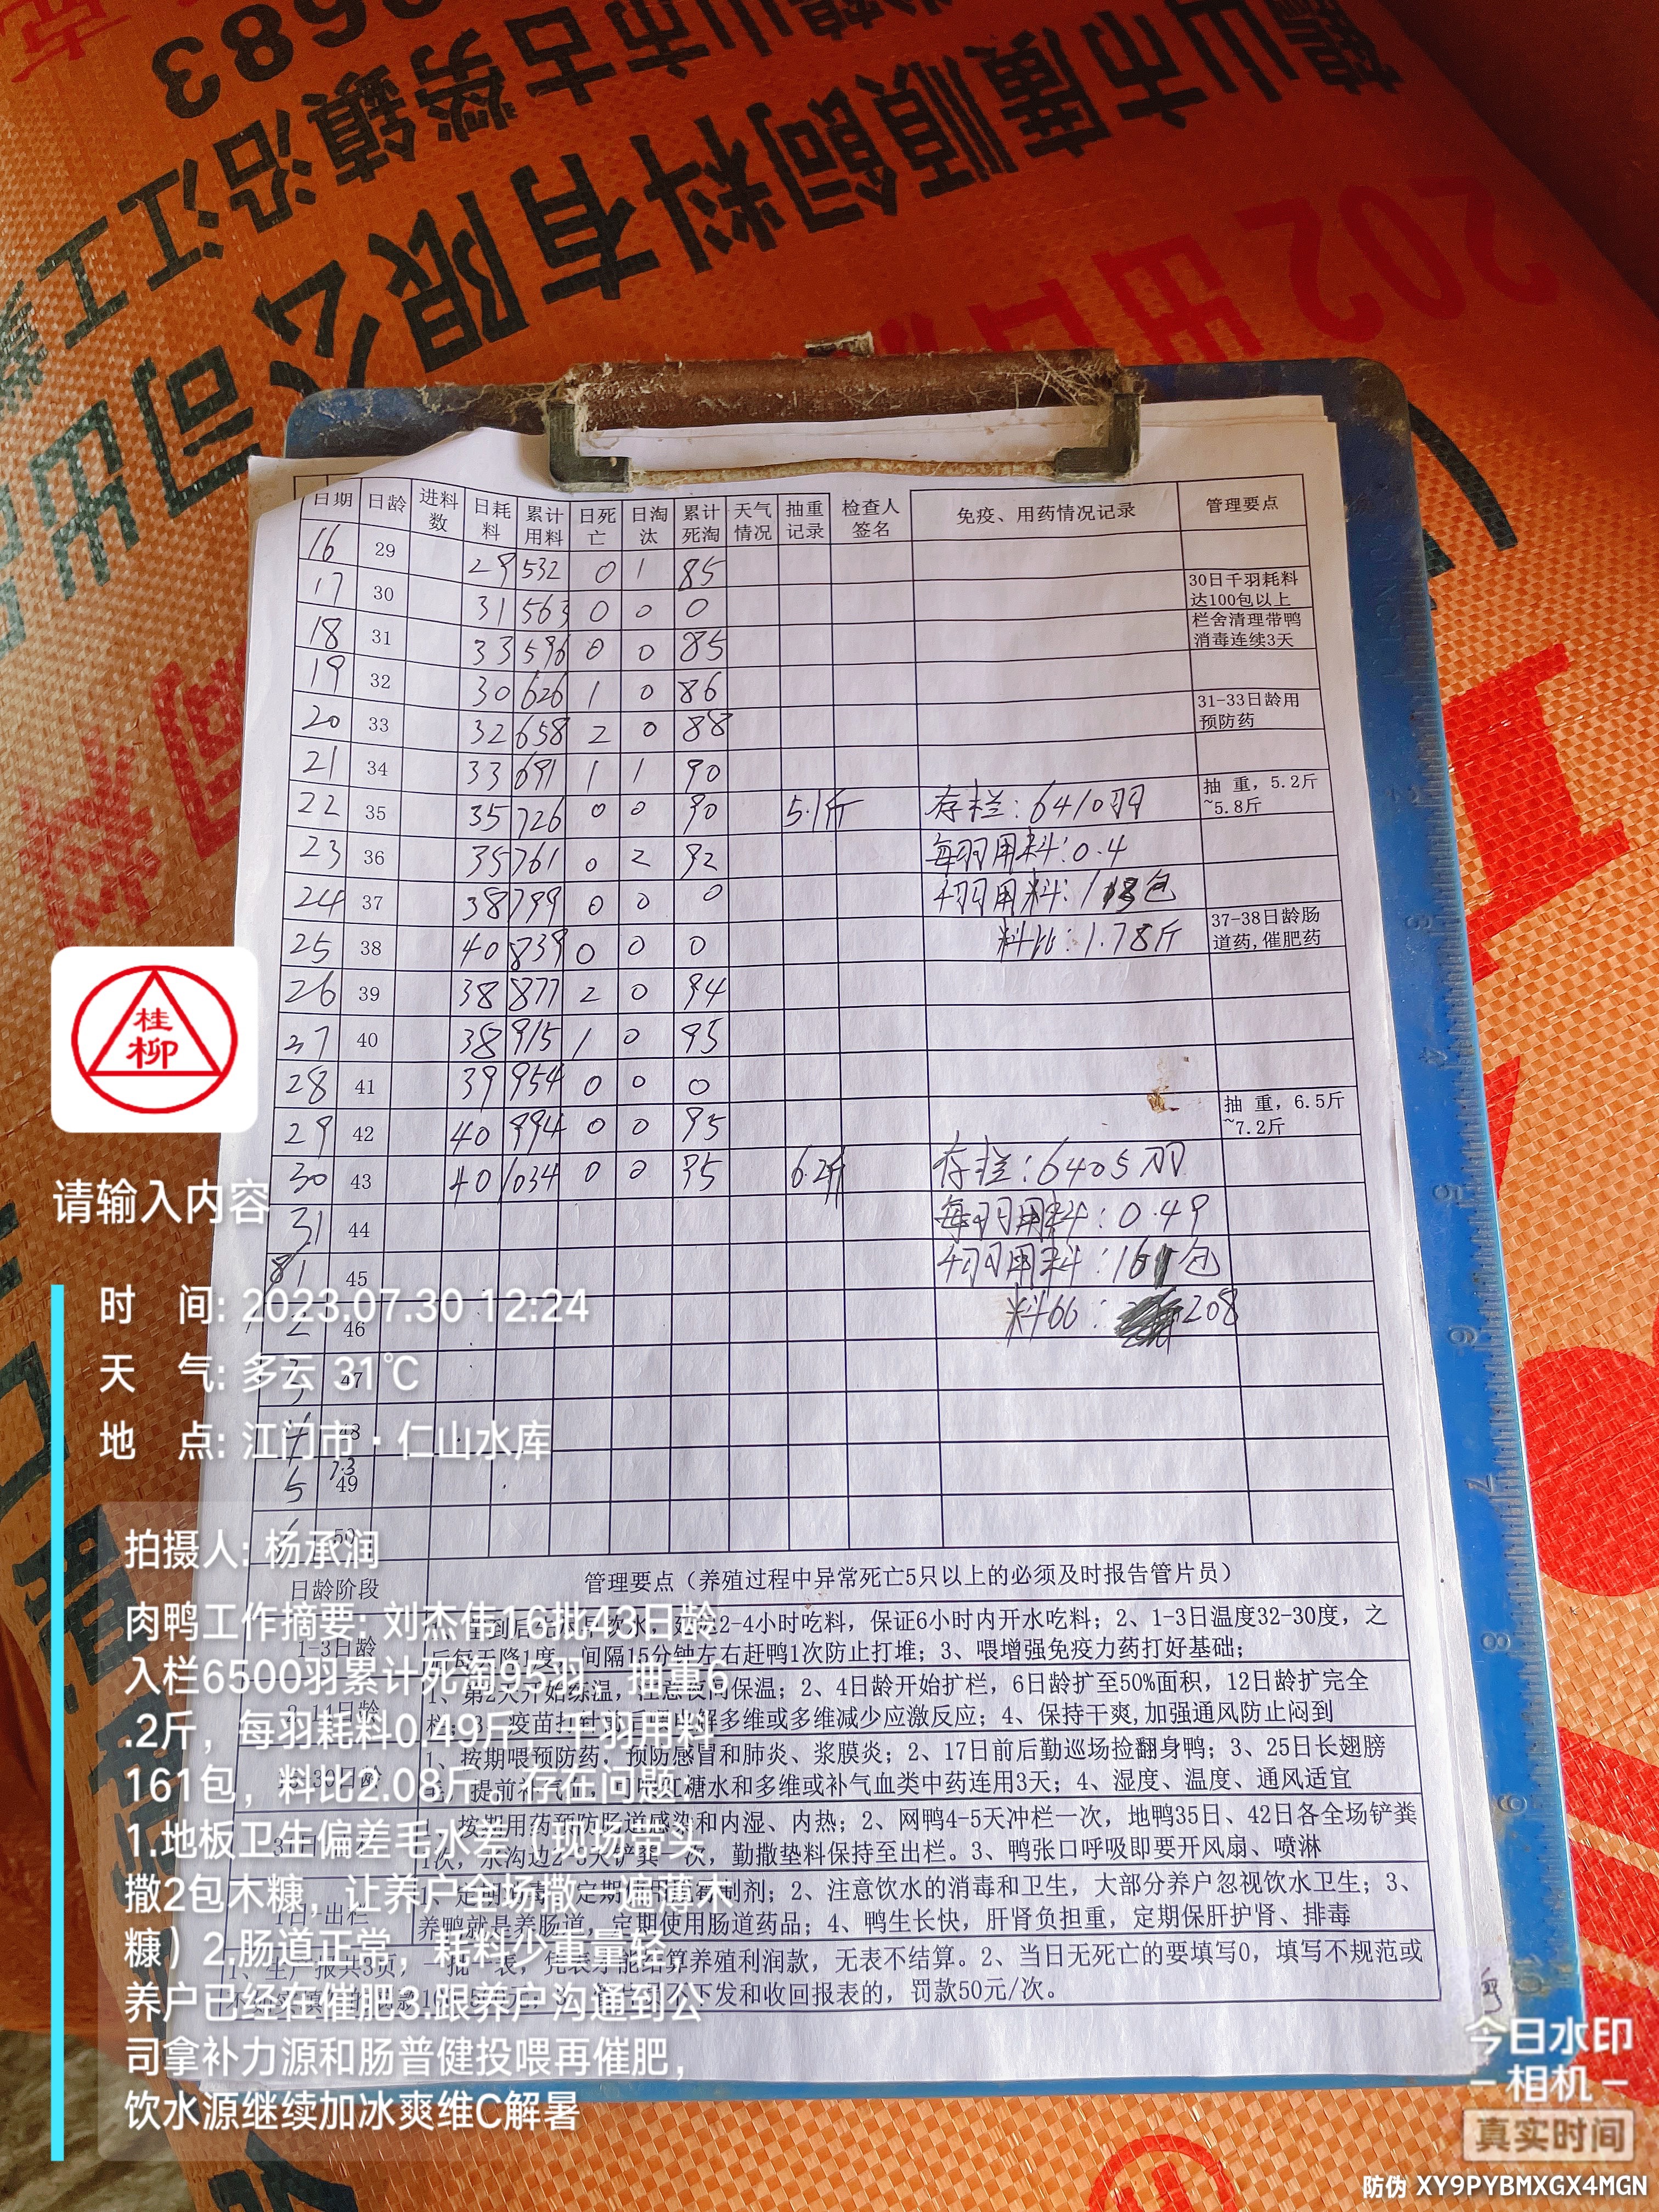 683
鹤山市古劳镇沿江工业
鹤山市广顺饲料有限公司
202
日期 日龄 进料数 日耗料 累计用料 日死亡 日淘汰 累计死淘 天气情况 抽重记录 检查人签名 免疫、用药情况记录 管理要点
16 29 29 532 0 1 85
17 30 31 563 0 0 0 30日千羽耗料达100包以上
18 31 33 596 0 0 85 栏舍清理带鸭消毒连续3天
19 32 30 626 1 0 86
20 33 32 658 2 0 88 31-33日龄用预防药
21 34 33 691 1 1 90
22 35 35 726 0 0 90 5.1斤 存栏:6410羽 抽 重，5.2斤~5.8斤
23 36 35 761 0 2 92 每羽用料:0.4
24 37 38 799 0 0 0 千羽用料:113包
25 38 40 839 0 0 0 料比:1.78斤 37-38日龄肠道药,催肥药
26 39 38 877 2 0 94
27 40 38 915 1 0 95
28 41 39 954 0 0 0
29 42 40 994 0 0 95 抽 重，6.5斤~7.2斤
30 43 40 1034 0 0 95 6.2斤 存栏:6405羽
31 44 每羽用料:0.49
8/1 45 千羽用料:161包
2 46 料比: 208
3 47
4 48
5 49
6 50
日龄阶段 管理要点（养殖过程中异常死亡5只以上的必须及时报告管片员）
1-3日龄 2-4小时吃料，保证6小时内开水吃料；2、1-3日温度32-30度，之
后每天降1度，间隔15分钟左右赶鸭1次防止打堆；3、喂增强免疫力药打好基础；
1、第2天开始练温，注意夜间保温；2、4日龄开始扩栏，6日龄扩至50%面积，12日龄扩完全
多维或多维减少应激反应；4、保持干爽,加强通风防止闷到
1、按期喂预防药，预防感冒和肺炎、浆膜炎；2、17日前后勤巡场捡翻身鸭；3、25日长翅膀
提前补气血，可喂红糖水和多维或补气血类中药连用3天；4、湿度、温度、通风适宜
1、按期用药预防肠道感染和内湿、内热；2、网鸭4-5天冲栏一次，地鸭35日、42日各全场铲粪
1次，水沟边2-3天铲粪一次，勤撒垫料保持至出栏。3、鸭张口呼吸即要开风扇、喷淋
制剂；2、注意饮水的消毒和卫生，大部分养户忽视饮水卫生；3、
养鸭就是养肠道，定期使用肠道药品；4、鸭生长快，肝肾负担重，定期保肝护肾、排毒
1、生产报共3页，一批一表，凭表才能结算养殖利润款，无表不结算。2、当日无死亡的要填写0，填写不规范或
不下发和收回报表的，罚款50元/次。
桂柳
请输入内容
时 间: 2023.07.30 12:24
天 气: 多云 31℃
地 点: 江门市·仁山水库
拍摄人: 杨承润
肉鸭工作摘要: 刘杰伟16批43日龄
入栏6500羽累计死淘95羽，抽重6
.2斤，每羽耗料0.49斤，千羽用料
161包，料比2.08斤。存在问题：
1.地板卫生偏差毛水差（现场带头
撒2包木糠，让养户全场撒一遍薄木
糠）2.肠道正常，耗料少重量轻，
养户已经在催肥3.跟养户沟通到公
司拿补力源和肠普健投喂再催肥，
饮水源继续加冰爽维C解暑
今日水印
相机
真实时间
防伪 XY9PYBMXGX4MGN